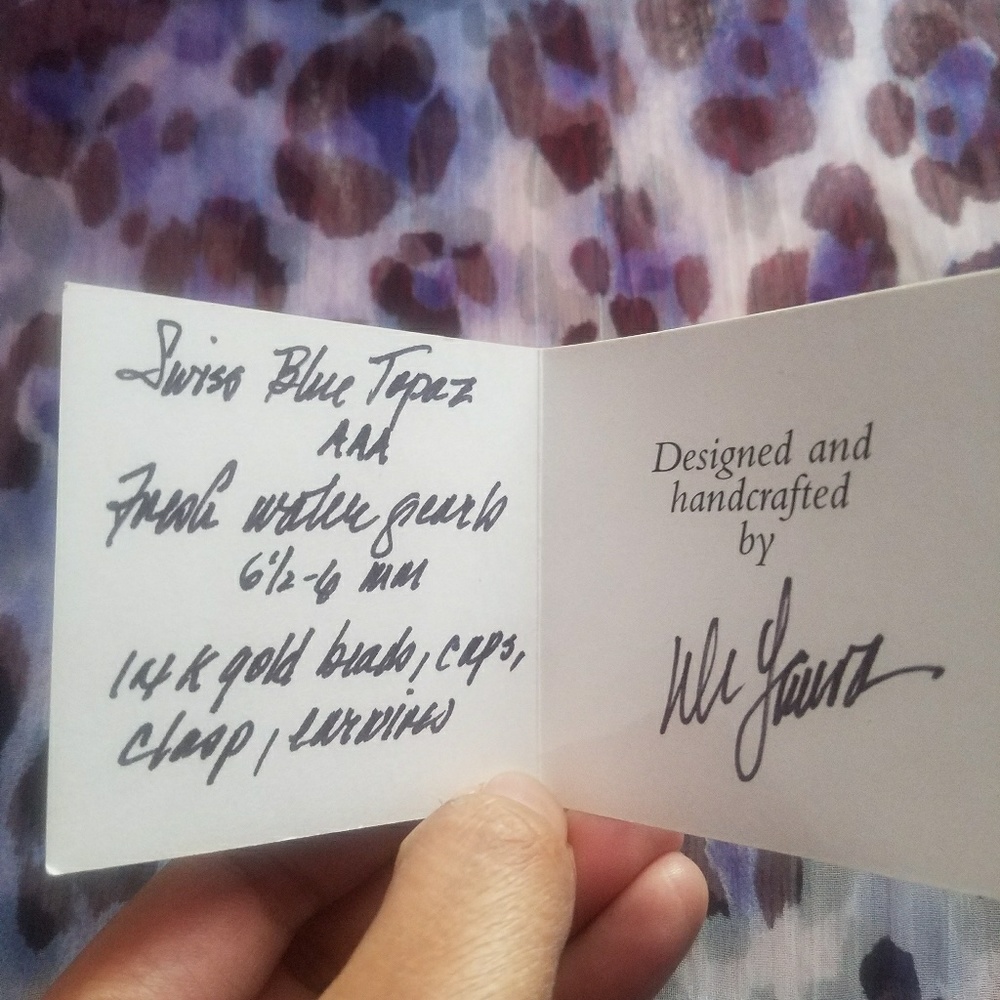 Swiss Blue Topaz
AAA
Fresh water pearls
6 1/2-6 mm
14K gold beads, caps,
clasp, earwires
Designed and
handcrafted
by